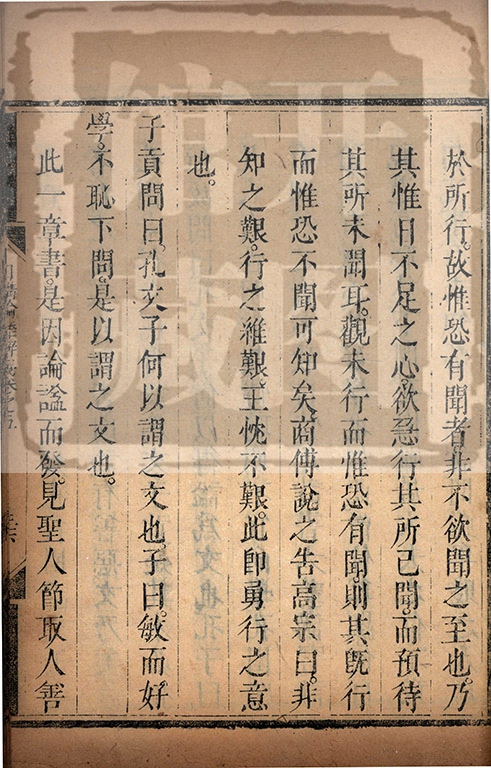 於所行。故惟恐有聞者。非不欲聞之至也。乃
其惟日不足之心。欲急行其所已聞而預待
其所未聞耳。觀未行而惟恐有聞。則其既行
而惟恐不聞可知矣。商傅說之告高宗曰。非
知之艱。行之維艱。王忱不艱。此即勇行之意
也。
子貢問曰。孔文子何以謂之文也。子曰。敏而好
學。不恥下問。是以謂之文也。
此一章書。是因論諡而發。見聖人節取人善